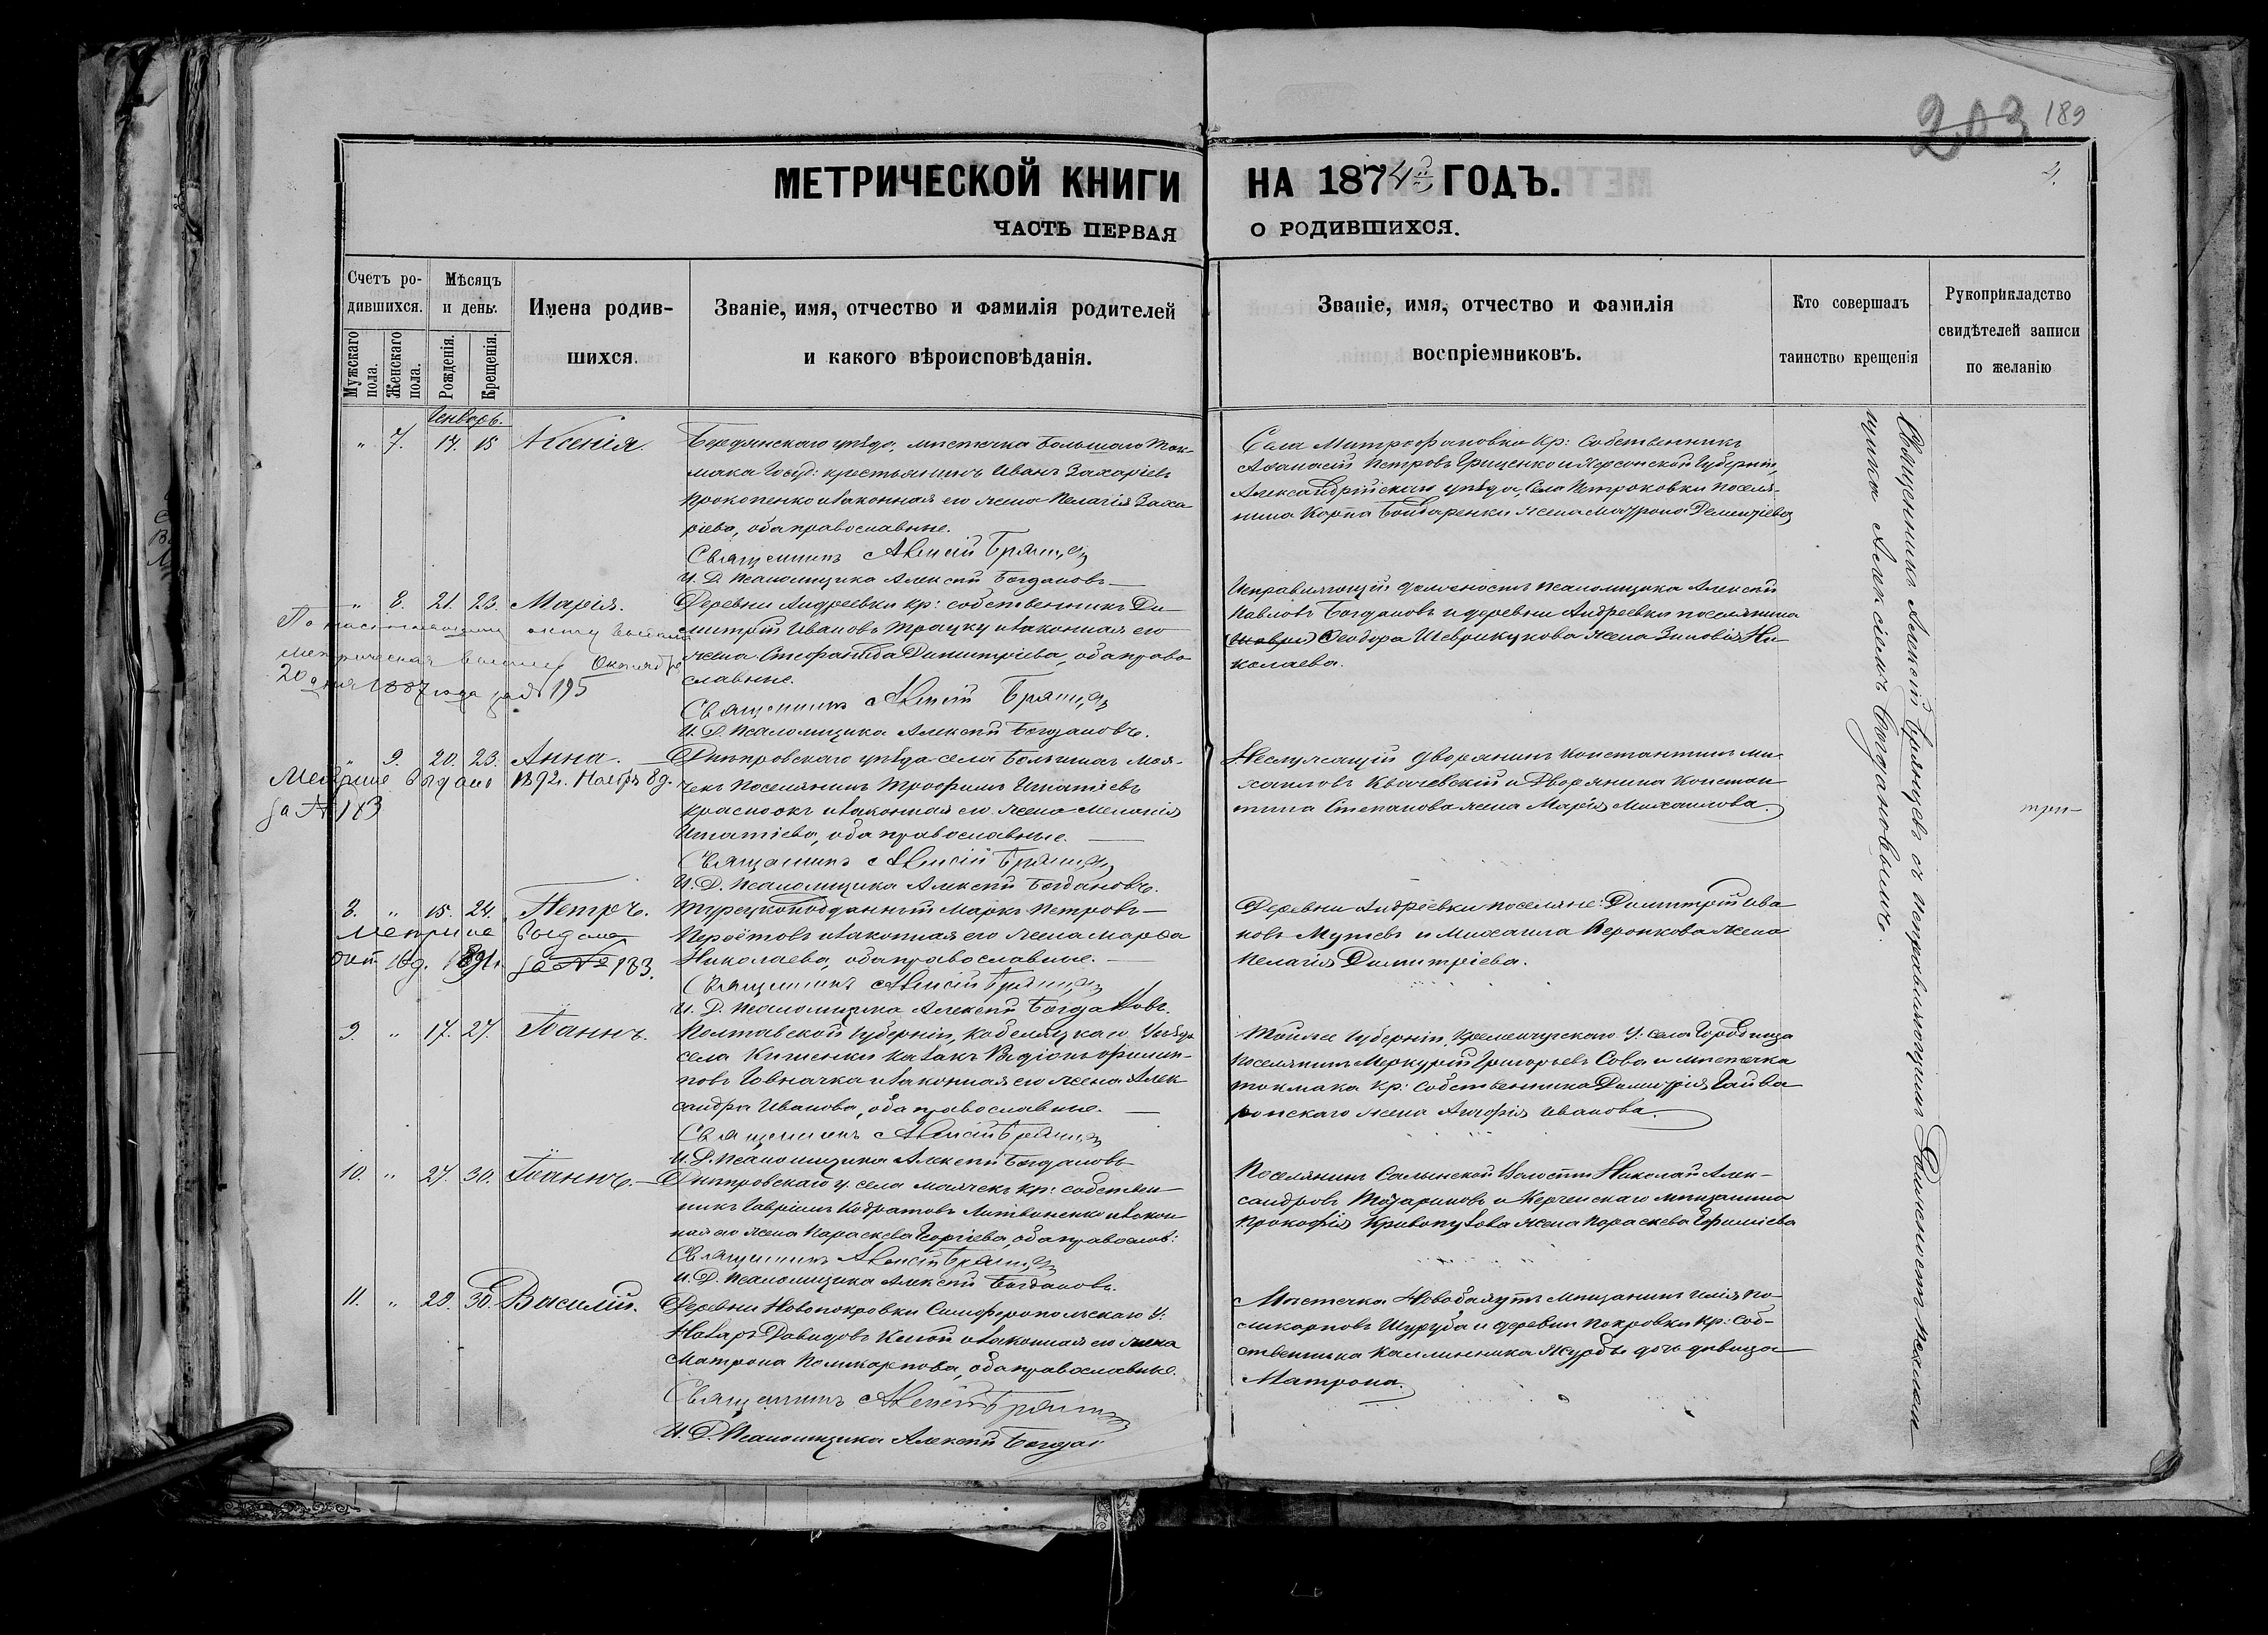 203 189
2.
МЕТРИЧЕСКОЙ КНИГИ НА 1874й ГОДЪ.
ЧАСТЬ ПЕРВАЯ О РОДИВШИХСЯ.
Счетъ ро-
дившихся.
Мужскаго пола.
Женскаго пола.
Мѣсяцъ
и день.
Рожденія.
Крещенія.
Имена родив-
шихся.
Званіе, имя, отчество и фамилія родителей
и какого вѣроисповѣданія.
Званіе, имя, отчество и фамилія
воспріемниковъ.
Кто совершалъ
таинство крещенія
Рукоприкладство
свидѣтелей записи
по желанію
Генварь.
" 7. 14. 15 Ксенія.
Бердянскаго уѣзда, мѣстечка Большаго Ток-
мака Госуд: крестьянинъ Иванъ Захаріевъ
Прокопенко и законная его жена Пелагія Заха
ріева, оба православные.
Священникъ Алексій Брянцевъ
И. Д. Псаломщика Алексѣй Богдановъ
Села Митрофановки кр: собственникъ
Аѳанасій Петровъ Гриценко и Херсонской Губерніи,
Александрійскаго уѣзда, Села Петроковки поселя-
нина Карпа Бондаренки жена Матрона Дементіева
" 8. 21. 23. Марія.
Деревни Андреевки кр: собственникъ Ди-
митрій Ивановъ Трацку и законная его
жена Стефанида Димитріева, оба право
славные.
Священникъ Алексій Брянцевъ
И. Д. Псаломщика Алексѣй Богдановъ.
Исправляющій должность псаломщика Алексѣй
Павловъ Богдановъ и деревни Андреевки поселянина
Ѳеодора Шеврикукова жена Зиновія Ни-
колаева.
По настоящему акту
метрическая Октября
20 дня 1887 года за № 195
" 9. 20. 23. Анна.
Днѣпровскаго уѣзда села Большихъ Мая-
чекъ Поселянинъ Трофимъ Игнатіевъ
Краснокъ и законная его жена Меланія
Игнатіева, оба православные.
Священникъ Алексій Брянцевъ
И. Д. Псаломщика Алексѣй Богдановъ.
Неслужащій дворянинъ Константинъ Ми-
хаиловъ Квачевскій и Дворянина Констан
тина Степанова жена Марія Михаилова.
Метрика выдана 1892. Ноябр 8 д.
за № 183
три
8. " 15. 24. Петръ.
Турецкоподданный Маркъ Петровъ
Пероётовъ и законная его жена Марѳа
Николаева, оба православные.
Священникъ Алексій Брянцевъ
И. Д. Псаломщика Алексѣй Богдановъ.
Деревни Андреевки поселяне: Димитрій Ива
новъ Мутевъ и Михаила Веронкова жена
Пелагія Димитріева.
Метрика выдана
Окт 16 д. 1891. за № 183.
9. " 17. 27. Іоаннъ.
Полтавской Губерніи, Кобеляцкаго Уѣзда
села Кишенки казакъ Родіонъ Филип-
повъ Говначка и законная его жена Алек
сандра Иванова, оба православные.
Священникъ Алексій Брянцевъ
И. Д. Псаломщика Алексѣй Богдановъ
Тойже Губерніи, Кременчугскаго У. села Городища
Поселянинъ Меркурій Григорьевъ Сова и мѣстечка
Токмака кр: собственника Димитрія Гайва
ронскаго жена Агафія Иванова.
10. " 27. 30. Іоаннъ.
Днѣпровскаго у. села Маячекъ кр: собствен
никъ Гавріилъ Кодратовъ Литвиненко и закон
ная его жена Параскева Георгіева, оба правосл:
Священникъ Алексій Брянцевъ
И. Д. Псаломщика Алексѣй Богдановъ.
Поселянинъ Салынской Волости Николай Алек-
сандровъ Татариновъ и Керченскаго мѣщанина
Прокофія Кривопузова жена Параскева Ефиміева
11. " 28. 30. Василій.
Деревни Новопокровки Симферопольскаго У.
Назаръ Давидовъ и законная его жена
Матрона Поликарпова, оба православные.
Священникъ Алексій Брянцевъ
И. Д. Псаломщика Алексѣй Богда
Мѣстечка Новобаязутъ мѣщанинъ Илія По-
ликарповъ Шуруба и деревни Покровки кр: соб-
ственника Каллинника Журбы дочь дѣвица
Матрона.
Священникъ Алексій Брянцевъ съ исправляющимъ Должность псалом
щика Алексіемъ Богдановымъ.